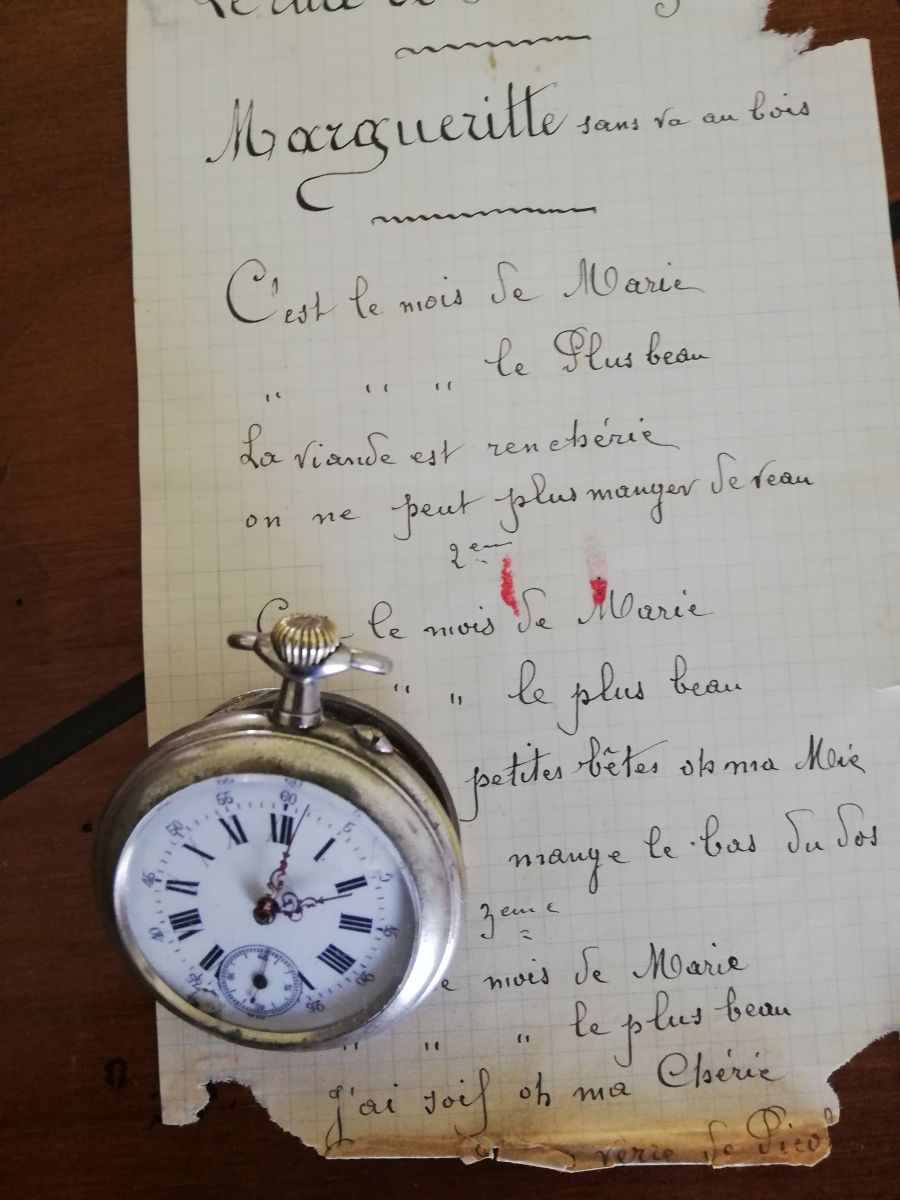 Margueritte sans va au bois
C'est le mois de Marie
" " " le Plus beau
La viande est renchérie
on ne peut plus manger de veau
2eme
le mois de Marie
" " le plus beau
petites bêtes oh ma Mie
mange le bas du dos
3eme
mois de Marie
" " " le plus beau
J'ai soif oh ma Chérie
verre de
60 5 45 50 55